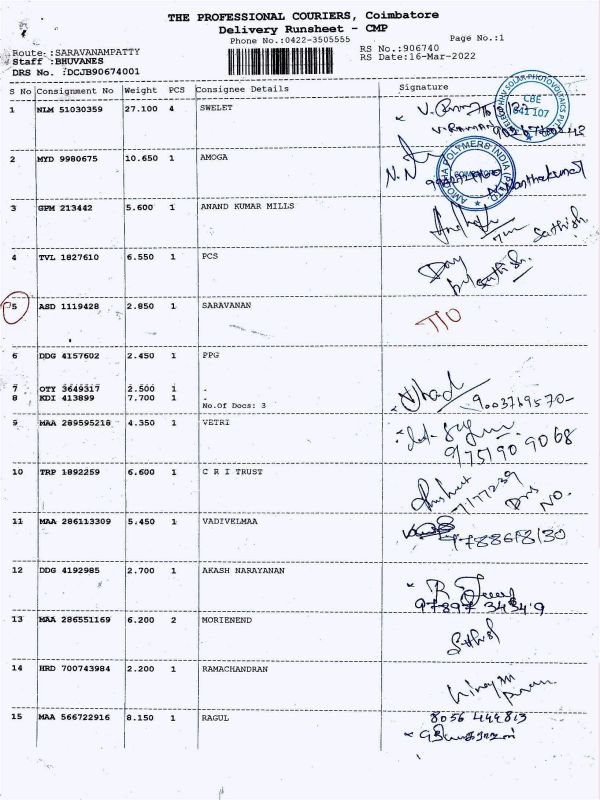 THE PROFESSIONAL COURIERS, Coimbatore
Delivery Runsheet - CMP
Phone No.:0422-3505555
Page No.:1
Route :SARAVANAMPATTY
RS No.:906740
Staff :BHUVANES
RS Date:16-Mar-2022
DRS No. :DCJB90674001
S No Consignment No Weight PCS Consignee Details Signature
1 NLM 51030359 27.100 4 SWELET
CBE
641 107
2 MYD 9980675 10.650 1 AMOGA
3 GPM 213442 5.600 1 ANAND KUMAR MILLS
Sathish
4 TVL 1827610 6.550 1 PCS
5 ASD 1119428 2.850 1 SARAVANAN
6 DDG 4157602 2.450 1 PPG
7 OTY 3649317 2.500 1 .
8 KDI 413899 7.700 1 .
No.Of Docs: 3
9003769570-
9 MAA 289595218 4.350 1 VETRI
9751909068
10 TRP 1892259 6.600 1 C R I TRUST
NO.
11 MAA 286113309 5.450 1 VADIVELMAA
12 DDG 4192985 2.700 1 AKASH NARAYANAN
13 MAA 286551169 6.200 2 MORIENEND
14 HRD 700743984 2.200 1 RAMACHANDRAN
15 MAA 566722916 8.150 1 RAGUL
8056 444813